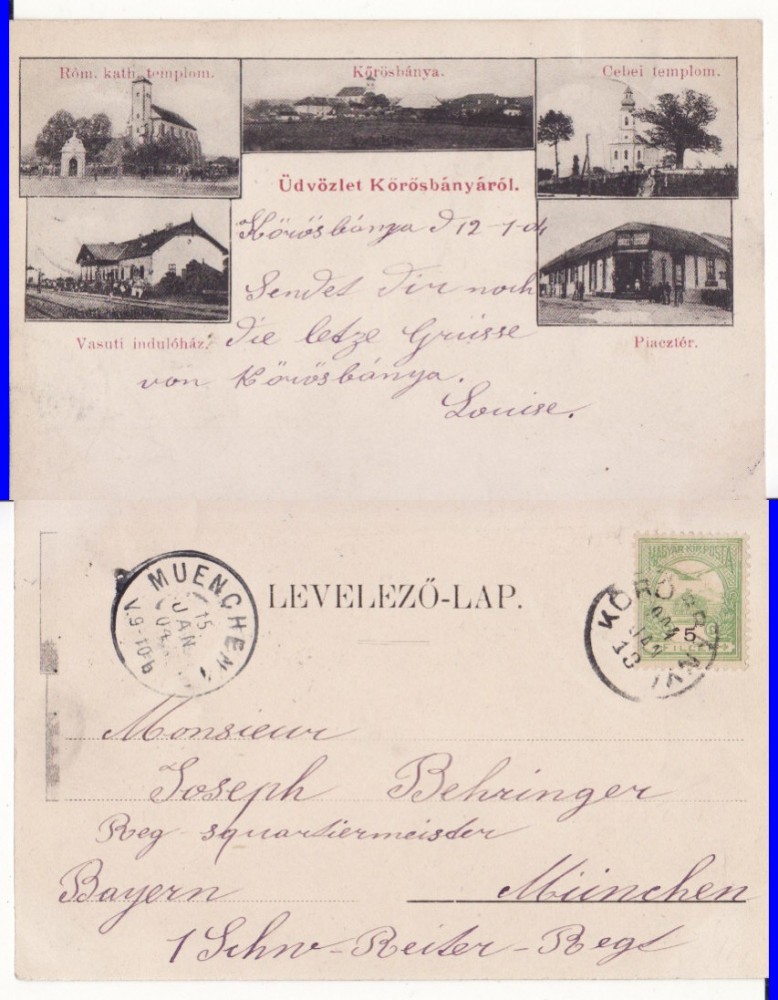 Róm. kath. templom.
Kőrösbánya.
Cebei templom.
Üdvözlet Kőrősbányáról.
Kőrösbánya d 12-1-04
Sendet dir noch
die letze Grüsse
von Kőrösbánya.
Louise.
Vasuti indulóház.
Piacztér.
LEVELEZŐ-LAP.
MUENCHEN 1
15
JAN
04
V.9-10b
MAGYAR KIR. POSTA
5
FILLÉR
904
JAN
13
Monsieur
Joseph Behringer
Reg-squartiermeister
Bayern München
1 Schw-Reiter-Regt